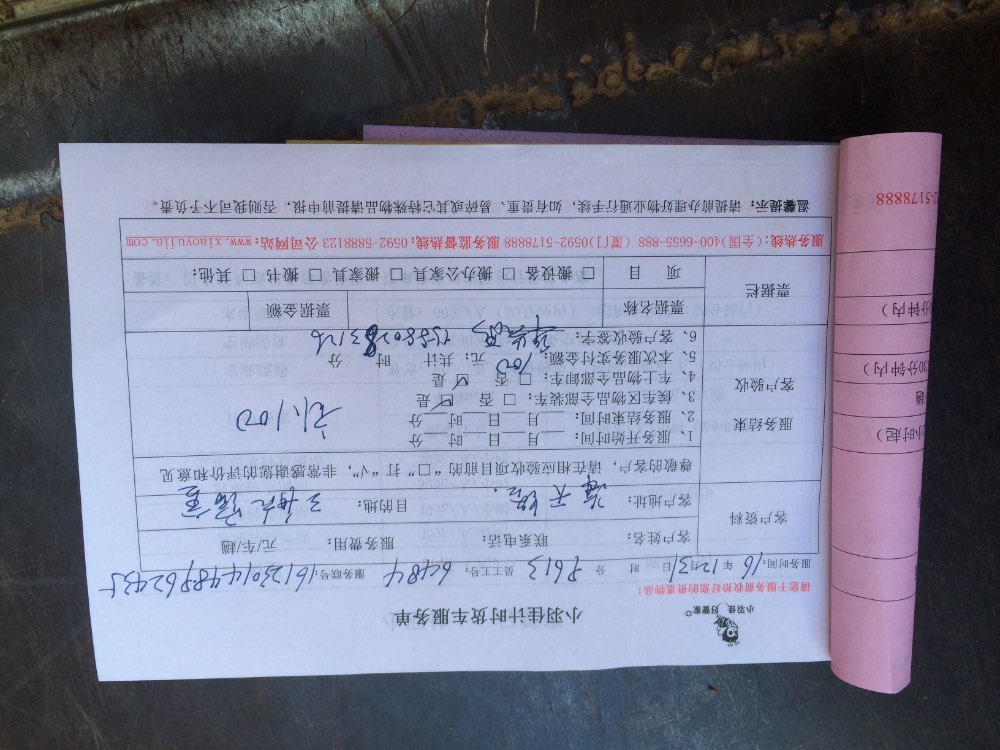 小羽佳 好管家
小羽佳计时货车服务单
请您于服务前收拾好您的贵重物品!
服务时间: 16 年 12 月 31 日 时 分 P613 员工工号: 6484 服务联号:
客户资料
客户姓名: 联系电话: 服务费用: 元/车/趟
客户地址: 目的地:
服务结束
客户验收
尊敬的客户,请在相应验收项目前的“□”打“√”,非常感谢您的评价和意见
1、服务开始时间: 月 日 时 分
2、服务结束时间: 月 日 时 分
3、候车区物品全部装车: □否 ☑是
4、车上物品全部卸车: □否 ☑是
5、本次服务实付金额: 100 元; 共计: 时 分
6、客户验收签字:
票据栏
票据名称 票据金额
项目 □搬设备 □搬办公家具 □搬家具 □搬书 □其他:
服务热线:(全国)400-6655-888 (厦门)0592-5178888 服务监督热线:0592-5888123 公司网站:www.xiaoyujia.com
温馨提示:请提前办理好物业通行手续,如有贵重、易碎或其它特殊物品请提前申报,否则我司不予负责。
2-5178888
分钟内)
30分钟内)
趟
小时起)